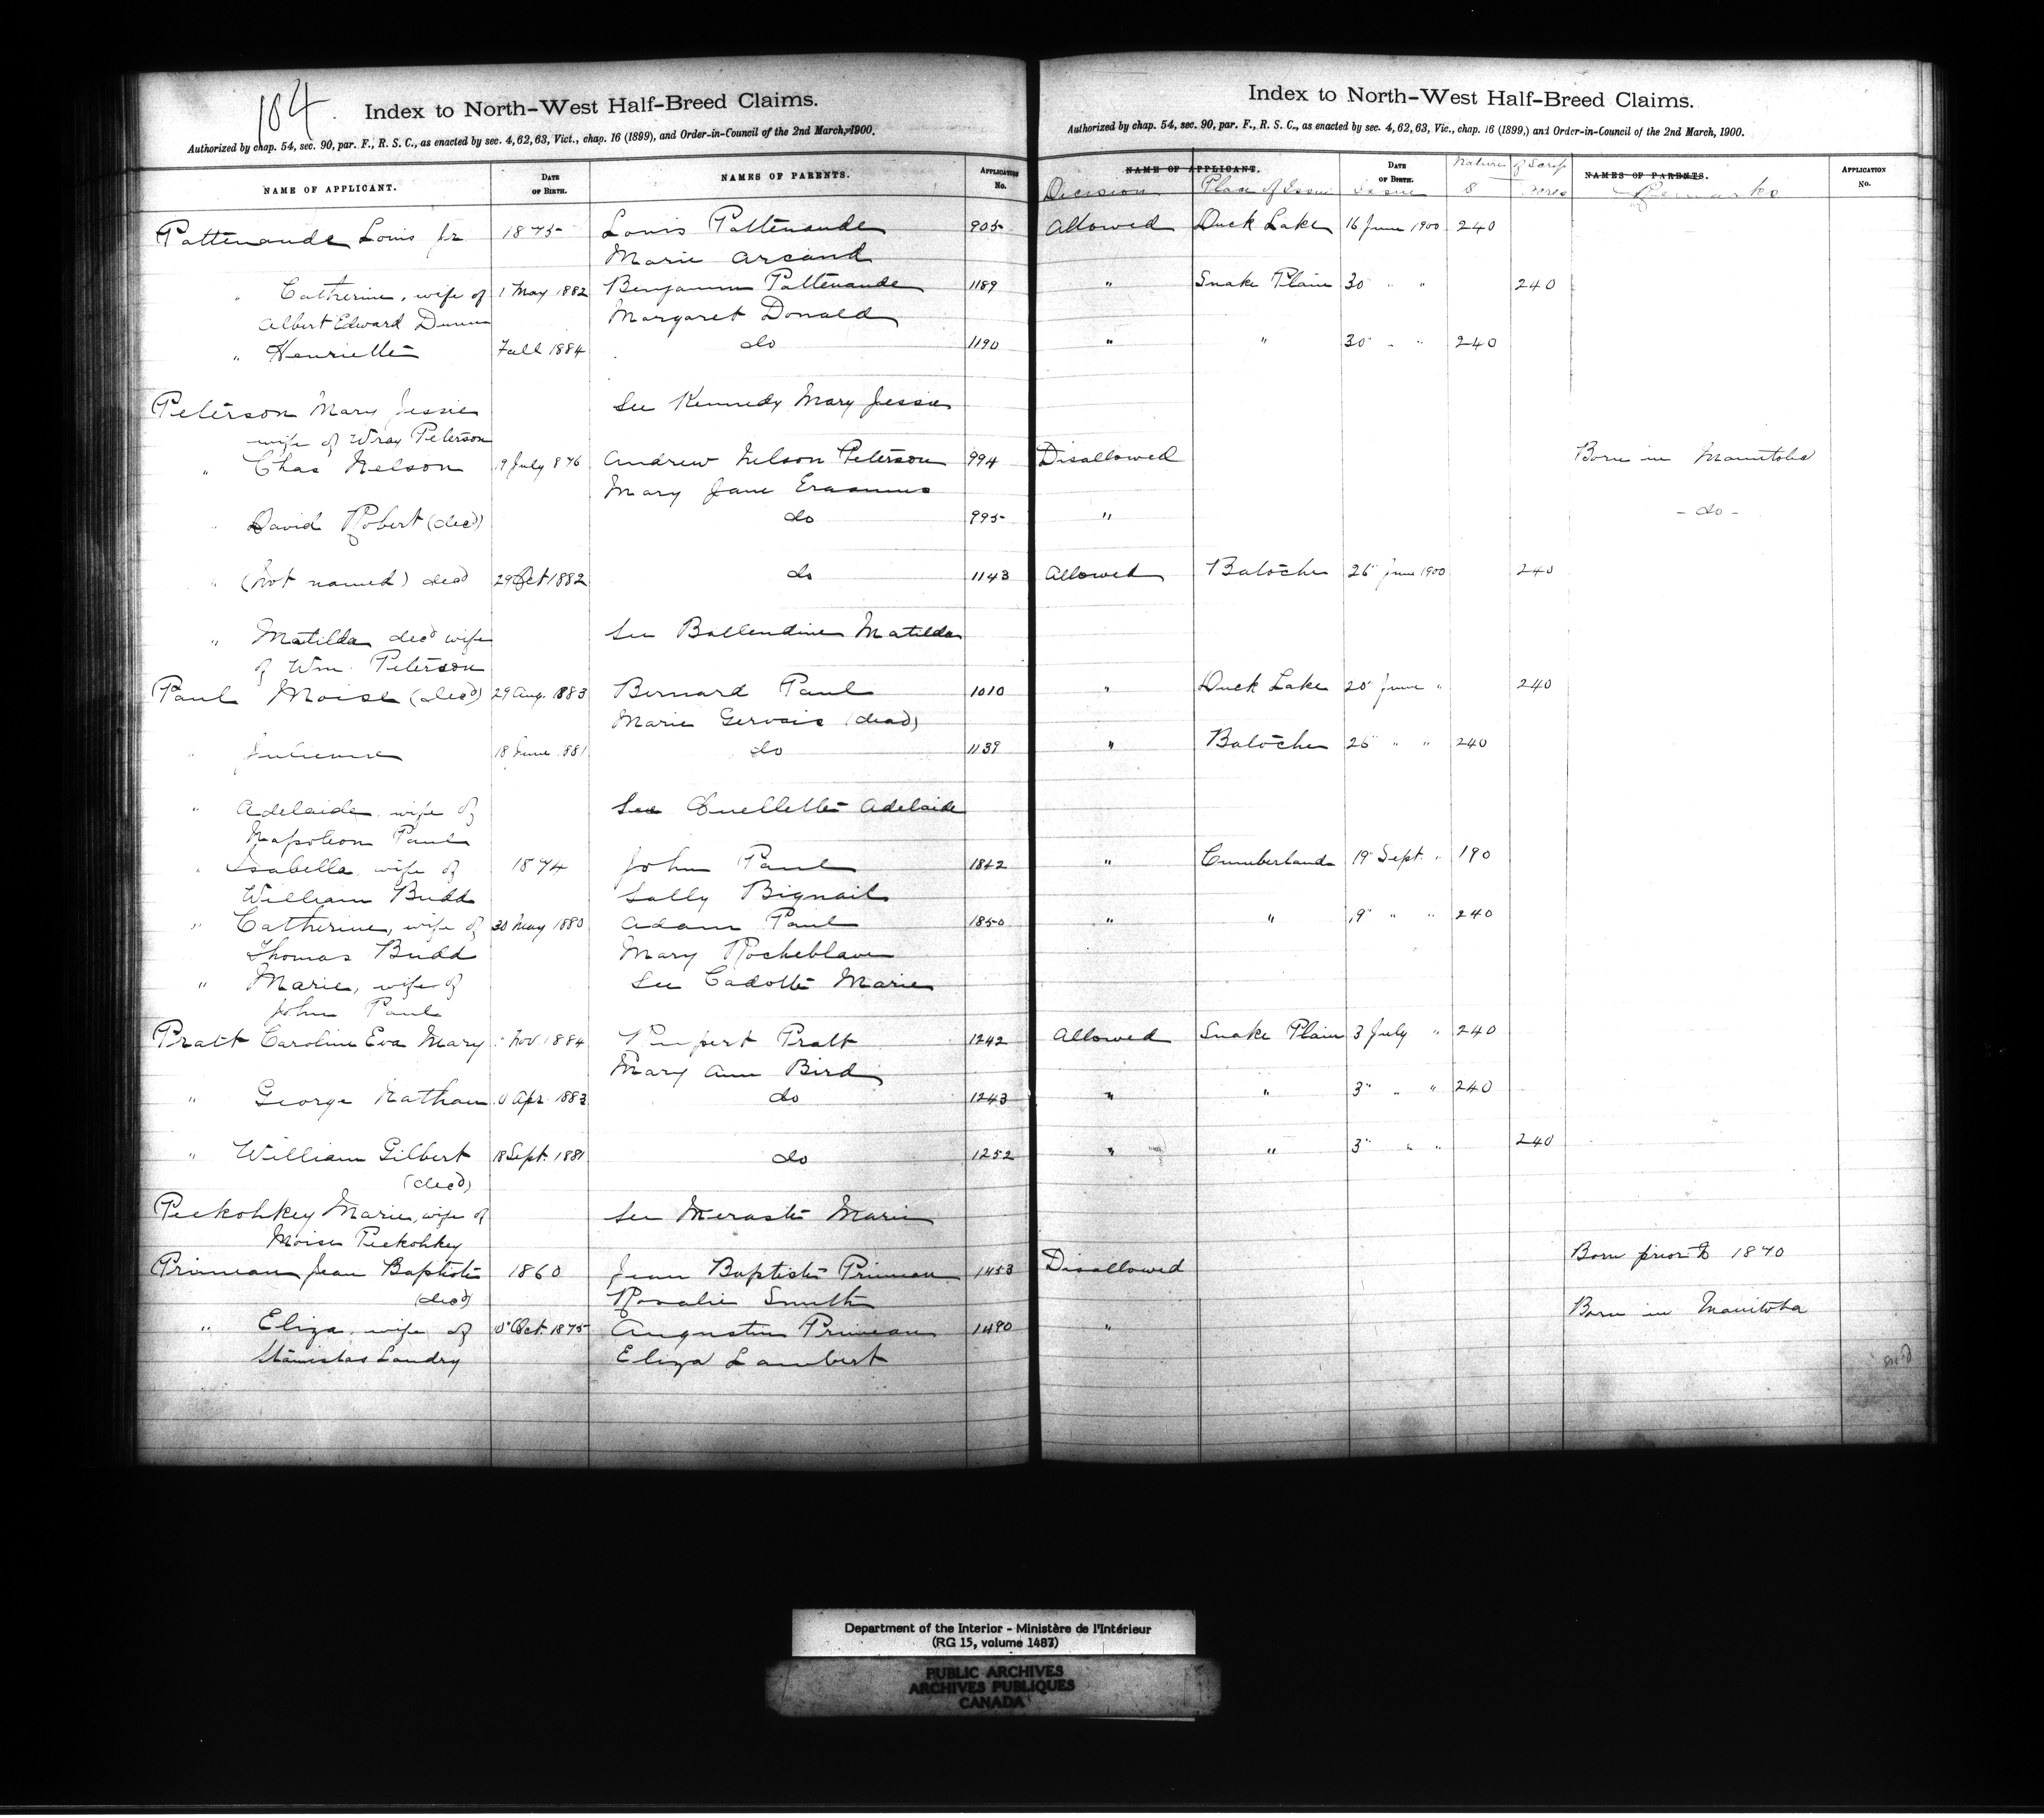 104
Index to North-West Half-Breed Claims.
Authorized by chap. 54, sec. 90, par. F., R. S. C., as enacted by sec. 4, 62, 63, Vict., chap. 16 (1899), and Order-in-Council of the 2nd March, 1900.
NAME OF APPLICANT. DATE OF BIRTH. NAMES OF PARENTS. APPLICATION No.
Pattenaude Louis jr 1875 Louis Pattenaude 905
Marie Arcand
" Catherine, wife of 1 May 1882 Benjamin Pattenaude 1189
Albert Edward Dunn Margaret Donald
" Henriette Fall 1884 do 1190
Peterson Mary Jessie See Kennedy Mary Jessie
wife of Wray Peterson
" Chas Nelson 19 July 876 Andrew Nelson Peterson 994
Mary Jane Erasmus
" David Robert (decd) do 995
" (not named) dead 29 Oct 1882 do 1143
" Matilda decd wife See Ballendine Matilda
of Wm. Peterson
Paul Moise (decd) 29 Aug. 1883 Bernard Paul 1010
Marie Gervais (dead)
" Julienne 18 June 1881 do 1139
" Adelaide, wife of See Ouellette Adelaide
Napoleon Paul
" Isabella, wife of 1874 John Paul 1842
William Budd Sally Bignail
" Catherine, wife of 30 May 1880 Adam Paul 1850
Thomas Budd Mary Rocheblave
" Marie, wife of See Cadotte Marie
John Paul
Pratt Caroline Eva Mary Nov. 1884 Rupert Pratt 1242
Mary Ann Bird
" George Nathan Apr 1883 do 1243
" William Gilbert 18 Sept. 1881 do 1252
(decd)
Peekohkey Marie, wife of See Meraste Marie
Moise Peekohkey
Primeau Jean Baptiste 1860 Jean Baptiste Primeau 1453
(decd) Rosalie Smith
" Eliza, wife of Oct. 1875 Augustin Primeau 1490
Stanislas Landry Eliza Lambert
Index to North-West Half-Breed Claims.
Authorized by chap. 54, sec. 90, par. F., R. S. C., as enacted by sec. 4, 62, 63, Vic., chap. 16 (1899,) and Order-in-Council of the 2nd March, 1900.
NAME OF APPLICANT. DATE OF BIRTH. Nature of Scrip NAMES OF PARENTS. APPLICATION No.
Decision Place of Issue Issue $ Acres Remarks
Allowed Duck Lake 16 June 1900 240
" Snake Plain 30 " " 240
" " 30 " " 240
Disallowed Born in Manitoba
" - do -
Allowed Batoche 26 June 1900 240
" Duck Lake 20 June " 240
" Batoche 26 " " 240
" Cumberland 19 Sept. " 190
" " 19 " " 240
Allowed Snake Plain 3 July " 240
" " 3 " " 240
" " 3 " " 240
Disallowed Born prior to 1870
" Born in Manitoba
Department of the Interior - Ministère de l'Intérieur
(RG 15, volume 1487)
PUBLIC ARCHIVES
ARCHIVES PUBLIQUES
CANADA